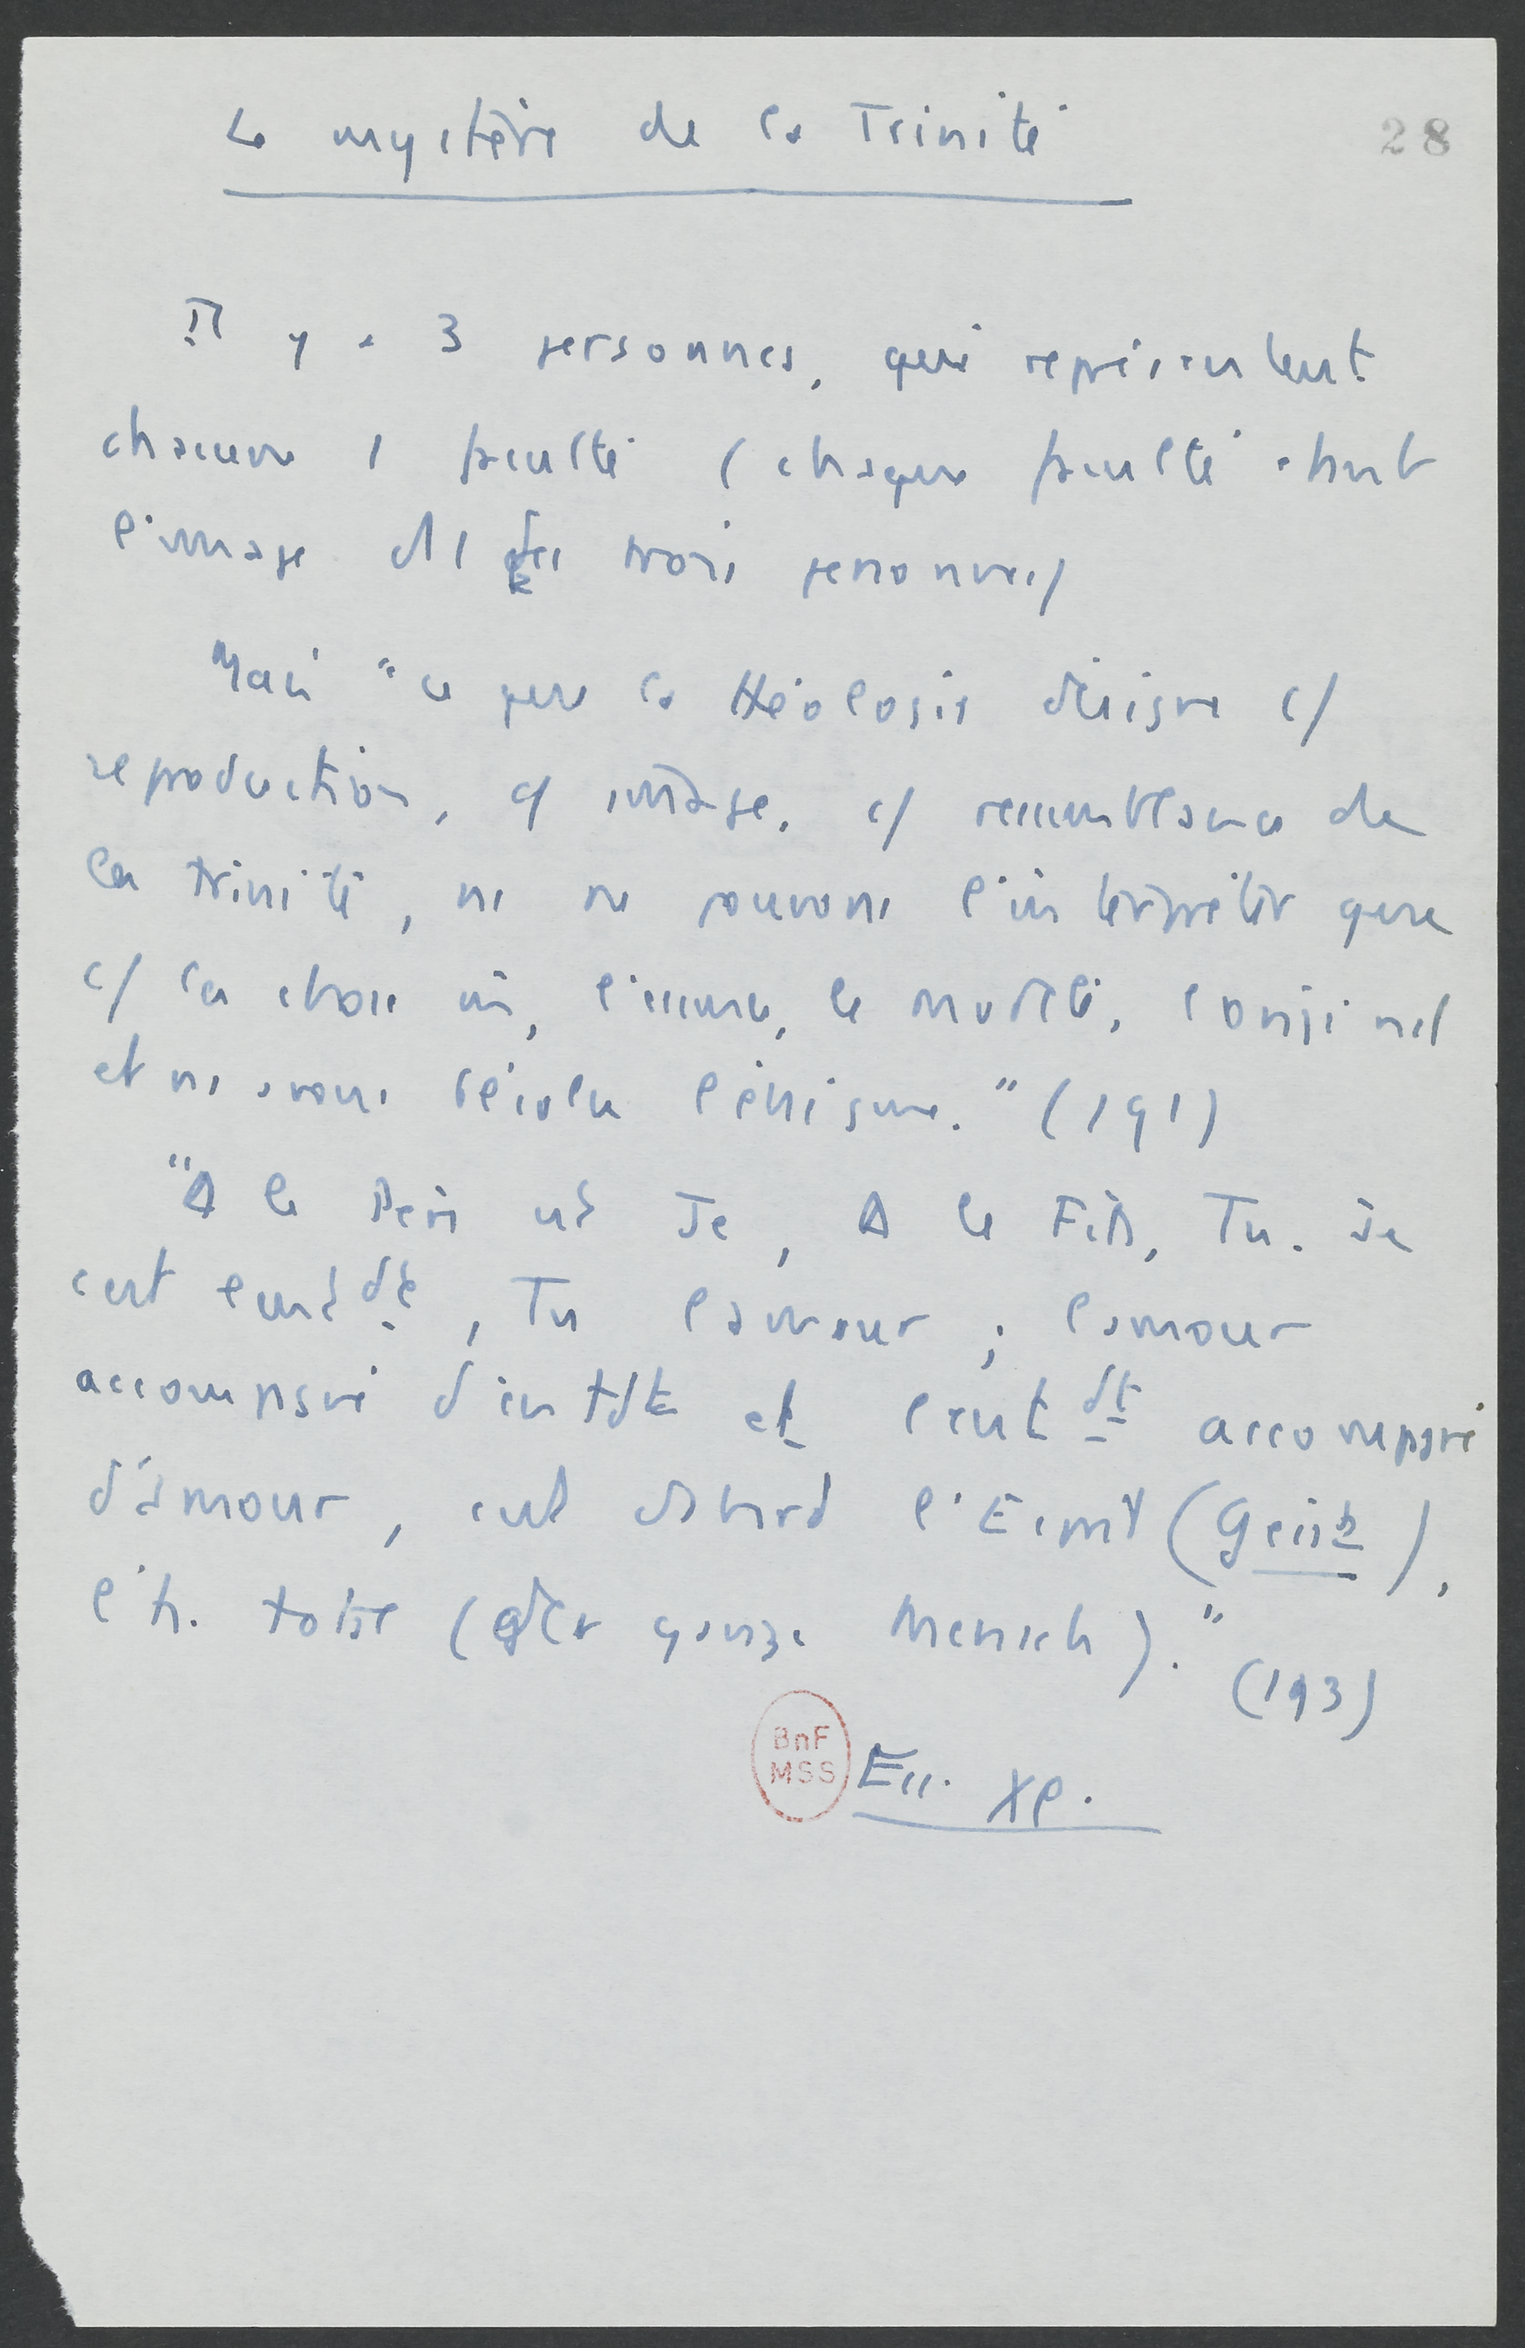 Le mystère de la Trinité
28
Il y a 3 personnes, qui représentent
chacune 1 faculté (chaque faculté étant
l'image d'1 des trois personnes)
Mais "ce que la théologie désigne c/
reproduction, c/ image, c/ ressemblance de
la trinité, ns ne pouvons l'interpréter que
c/ la chose même, l'essence, le modèle, l'original
et ns avons résolu l'énigme." (191)
"∆ le Père est Je, ∆ le Fils, Tu. Je
c'est l'entdt, Tu l'amour ; l'amour
accompagné d'entdt et l'entdt accompagné
d'amour, c'est d'abord l'Esprit (Geist),
l'h. total (der ganze Mensch)."
(193)
BnF
MSS
Ess. Xp.